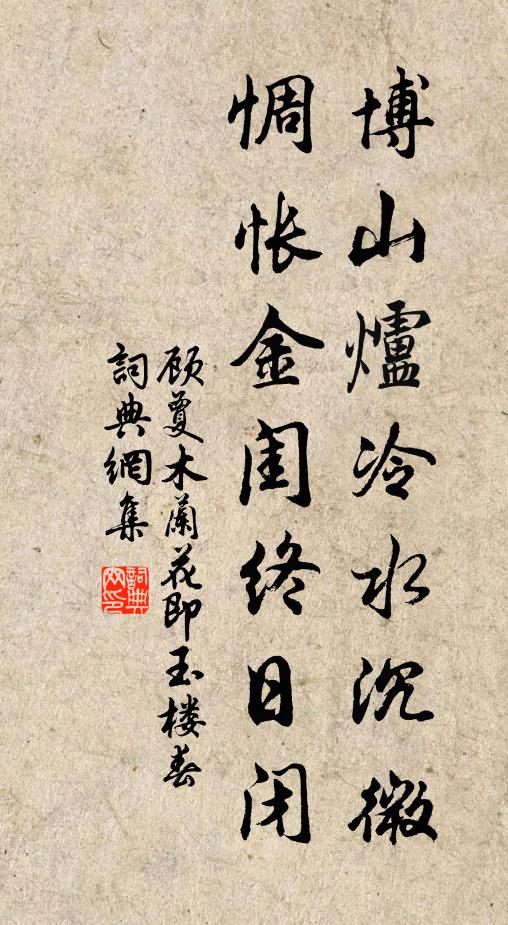 博山爐冷水沉微
惆怅金闺终日闭
顾夐木蘭花即玉楼春
詞典網集
詞典网印